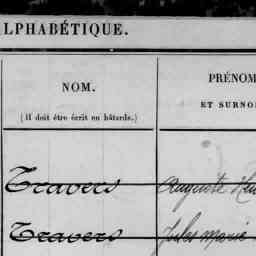 LPHABÉTIQUE.
NOM. PRÉNOM
(Il doit être écrit en bâtarde.) ET SURNO
Travers Auguste Hen
Travers Jules Marie